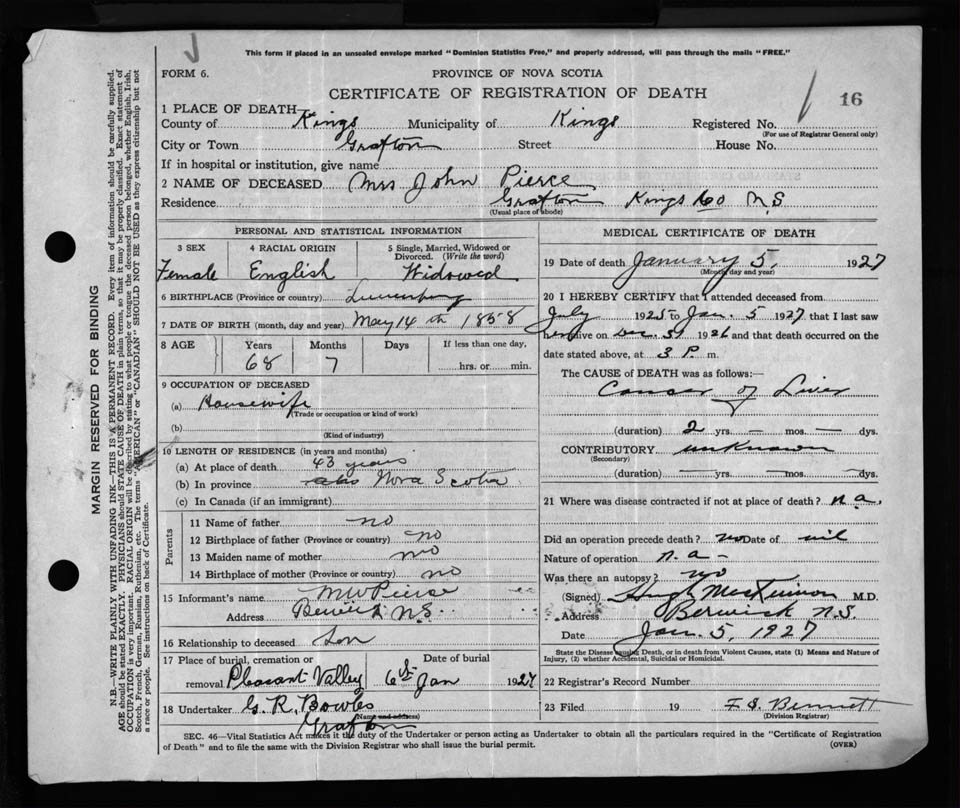 This form if placed in an unsealed envelope marked "Dominion Statistics Free," and properly addressed, will pass through the mails "FREE."
FORM 6.
PROVINCE OF NOVA SCOTIA
CERTIFICATE OF REGISTRATION OF DEATH
16
1 PLACE OF DEATH
County of Kings Municipality of Kings Registered No.
(For use of Registrar General only)
City or Town Grafton Street House No.
If in hospital or institution, give name
2 NAME OF DECEASED Mrs John Pierce
Residence Grafton Kings Co N.S.
(Usual place of abode)
MARGIN RESERVED FOR BINDING
N.B.—WRITE PLAINLY WITH UNFADING INK—THIS IS A PERMANENT RECORD. Every item of information should be carefully supplied.
AGE should be stated EXACTLY. PHYSICIANS should STATE CAUSE OF DEATH in plain terms, so that it may be properly classified. Exact statement of
OCCUPATION is very important. RACIAL ORIGIN will be described by stating to what people or tongue the deceased person belonged, whether English, Irish,
Scotch, French, German, Russian, Ruthenian, etc. The terms "AMERICAN" or "CANADIAN" SHOULD NOT BE USED as they express citizenship but not
a race or people. See instructions on back of Certificate.
PERSONAL AND STATISTICAL INFORMATION
3 SEX
Female
4 RACIAL ORIGIN
English
5 Single, Married, Widowed or
Divorced. (Write the word)
Widowed
6 BIRTHPLACE (Province or country) Lunenburg
7 DATE OF BIRTH (month, day and year) May 14th 1858
8 AGE Years Months Days If less than one day,
68 7 hrs. or min.
9 OCCUPATION OF DECEASED
(a) Housewife
(Trade or occupation or kind of work)
(b)
(Kind of industry)
10 LENGTH OF RESIDENCE (in years and months)
(a) At place of death 43 years
(b) In province Nova Scotia
(c) In Canada (if an immigrant)
Parents
11 Name of father no
12 Birthplace of father (Province or country) no
13 Maiden name of mother no
14 Birthplace of mother (Province or country) no
15 Informant's name M W Pierce
Address Berwick N.S.
16 Relationship to deceased Son
17 Place of burial, cremation or Date of burial
removal Pleasant Valley 6th Jan 1927
18 Undertaker G. R. Bowles
(Name and address)
Grafton
MEDICAL CERTIFICATE OF DEATH
19 Date of death January 5, 1927
(Month, day and year)
20 I HEREBY CERTIFY that I attended deceased from
July 1925 to Jan. 5 1927 that I last saw
her alive on Dec. 31 1926 and that death occurred on the
date stated above, at 3 P. m.
The CAUSE of DEATH was as follows:—
Cancer of Liver
(duration) 2 yrs. — mos. — dys.
CONTRIBUTORY unknown
(Secondary)
(duration) — yrs. — mos. — dys.
21 Where was disease contracted if not at place of death? n.a.
Did an operation precede death? no Date of nil
Nature of operation n.a —
Was there an autopsy? no
(Signed) Hugh MacKinnon M.D.
Address Berwick N.S.
Date Jan. 5, 1927
State the Disease causing Death, or in death from Violent Causes, state (1) Means and Nature of
Injury, (2) whether Accidental, Suicidal or Homicidal.
22 Registrar's Record Number
23 Filed 19 F. S. Bennett
(Division Registrar)
SEC. 46—Vital Statistics Act makes it the duty of the Undertaker or person acting as Undertaker to obtain all the particulars required in the "Certificate of Registration
of Death" and to file the same with the Division Registrar who shall issue the burial permit.
(OVER)